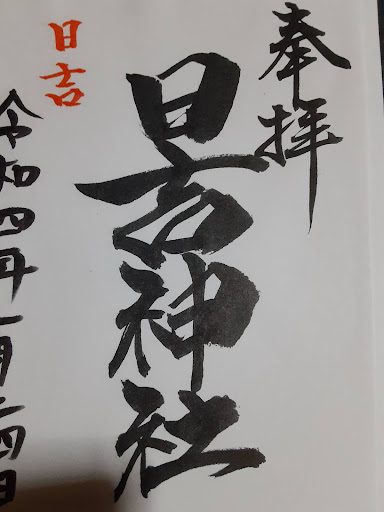 奉拝
日吉神社
日吉
令和四年一月二四日